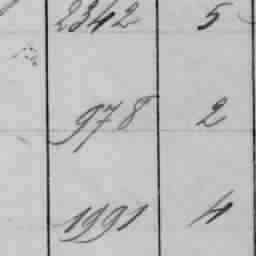 2342 5
978 2
1991 4